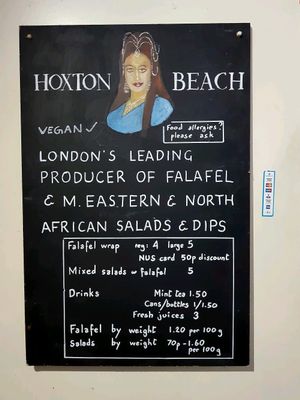 HOXTON BEACH
VEGAN ✓
Food allergies?
please ask
LONDON'S LEADING
PRODUCER OF FALAFEL
& M. EASTERN & NORTH
AFRICAN SALADS & DIPS
Falafel wrap reg: 4 large 5
NUS card 50p discount
Mixed salads w falafel 5
Drinks Mint tea 1.50
Cans/bottles 1/1.50
Fresh juices 3
Falafel by weight 1.20 per 100g
Salads by weight 70p-1.60
per 100g